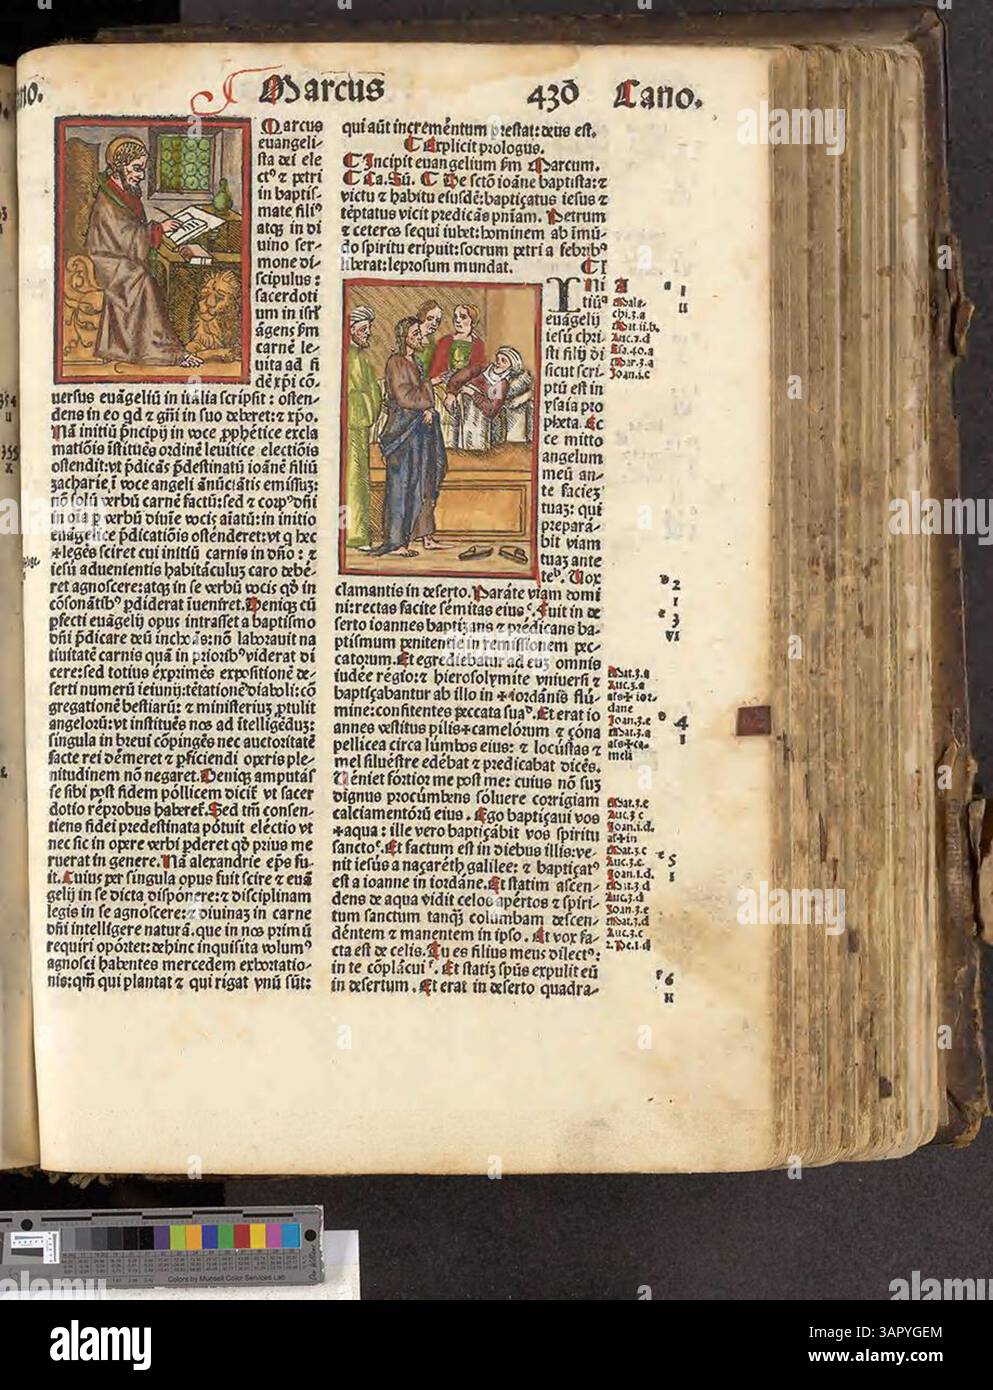 no.
Marcus
430
Cano.
Marcus
euangeli-
sta dei ele
ctꝰ ⁊ petri
in baptis-
mate filiꝰ
atqꝫ in di
uino ser-
mone di-
scipulus:
sacerdoti
um in isrl
agens ẜm
carnē le-
uita ad fi
dē xp̄i cō-
uersus euāgeliū in italia scripsit: osten-
dens in eo qd ⁊ gn̄i in suo deberet: ⁊ xp̄o.
Nā initiū p̄ncipij in voce ꝓphetice excla
matiōis īstituēs ordinē leuitice electiōis
ostendit: vt p̄dicās p̄destinatū ioānē filiū
zacharie, ī voce angeli ānūciātis emissuꝫ:
nō solū verbū carnē factū: sed ⁊ corpꝰ dn̄i
in oīa ꝑ verbū diuīe vocis aīatū: in initio
euāgelice p̄dicatiōis ostenderet: vt q hec
+legēs sciret cui initiū carnis in dn̄o: ⁊
iesu aduenientis habitāculuꝫ caro debē-
ret agnoscere: atqꝫ in se verbū vocis qd̄ in
cōsonātibꝰ ꝑdiderat īueniret. Deniqꝫ cū
ꝑfecti euāgelij opus intrasset a baptismo
dn̄i p̄dicare deū inchoās: nō laborauit na
tiuitatē carnis quā in prioribꝰ viderat di
cere: sed totius exprimēs expositionē de-
serti numerū ieiunij: tētationē diaboli: cō
gregationē bestiarū: ⁊ ministeriuꝫ ꝓtulit
angelorū: vt instituēs nos ad ītelligēduꝫ:
singula in breui cōpingēs nec auctoritatē
facte rei dēmeret ⁊ ꝑficiendi operis ple-
nitudinem nō negaret. Deniqꝫ amputās
se sibi post fidem pollicem dicit̄ vt sacer
dotio reprobus haberet̄. Sed tm̄ consen-
tiens fidei predestinata potuit electio vt
nec sic in opere verbi ꝑderet qd̄ prius me
ruerat in genere. Nā alexandrie ep̄s fu-
it. Cuius per singula opus fuit scire ⁊ euā
gelij in se dicta disponere: ⁊ disciplinam
legis in se agnoscere: ⁊ diuinaꝫ in carne
dn̄i intelligere naturā. que in nos primū
requiri oportet: dehinc inquisita volumꝰ
agnosci habentes mercedem exhortatio-
nis: qm̄ qui plantat ⁊ qui rigat vnū sūt:
qui aūt incrementum prestat: deus est.
Explicit prologus.
Incipit euangelium ẜm Marcum.
Ca. I. De sctō ioāne baptista: ⁊
victu ⁊ habitu eiusdē: baptiçatus iesus ⁊
tēptatus vicit predicās pn̄iam. Petrum
⁊ ceteros sequi iubet: hominem ab īmū-
do spiritu eripuit: socrum petri a febribꝰ
liberat: leprosum mundat.
I
ni
tiūꝫ
euāgelij
iesū chri-
sti filij di
sicut scri-
ptū est in
ysaia pro
pheta. Ec
ce mitto
angelum
meū an-
te facieꝫ
tuaꝫ: qui
prepara-
bit viam
tuaꝫ ante
te. Vox
clamantis in deserto. Parāte viam domi
ni: rectas facite sēmitas eius. Fuit in de
serto ioannes baptiꝫans ⁊ prēdicans ba-
ptismum penitentie in remissionem pec-
catorum. Et egrediebatur ad euꝫ omnis
iudēe regio: ⁊ hierosolymite vniuersi ⁊
baptiçabantur ab illo in +iordānis flū-
mine: confitentes peccata sua. Et erat io
annes vestitus pilis+camelorum ⁊ çona
pellicea circa lumbos eius: ⁊ locustas ⁊
mel siluestre edēbat ⁊ predicabat dicēs.
Ueniet fortior me post me: cuius nō suꝫ
dignus procūmbens soluere corrigiam
calciamentōrū eius. Ego baptiçaui vos
+aqua: ille vero baptiçābit vos spiritu
sancto. Et factum est in diebus illis: ve-
nit iesus a naçareth galilee: ⁊ baptiçatꝰ
est a ioanne in iordane. Et statim ascen-
dens de aqua vidit celos apertos ⁊ spiri-
tum sanctum tanqꝫ columbam descen-
dentem ⁊ manentem in ipso. Et vox fa-
cta est de celis. Tu es filius meus dilectꝰ:
in te cōplacui. Et statiꝫ sp̄us expulit eū
in desertum. Et erat in deserto quadra-
A
Mala-
chi.3.a
Mat.ii.b.
Luc.7.d
Esa.40.a
Mar.3.a
Joan.i.c
1
ii
2
1
3
vi
Mat.3.a
Luc.3.a
als+ ior-
dane
Joan.3.e
Mat.3.a
als+ca-
meli
4
1
Mat.3.c
Luc.3 c
Joan.i.d.
als+in
Mat.3.c
Luc.3.c.
Joan.1.d.
Mat.3 d
Luc.3.d
Joan.3.e
Mat.3.d
Luc.3.c
2.Pe.1.d
5
1
6
ii
Colors by Munsell Color Services Lab
alamy
Image ID: 3APYGEM
www.alamy.com